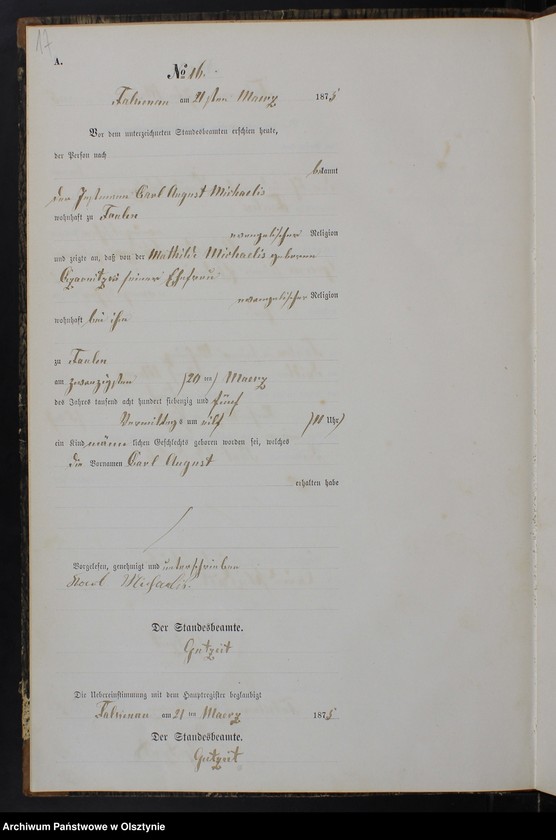 17
A.
No 16.
am 21ten Maerz 1875
Vor dem unterzeichneten Standesbeamten erschien heute,
der Person nach
bekannt
der Instmann Carl August Michaelis
wohnhaft zu Taulen
evangelischer Religion
und zeigte an, daß von der Mathilde Michaelis geborene
Czarnitzki seiner Ehefrau
evangelischer Religion
wohnhaft bei ihm
zu Taulen
am zwanzigsten (20 ten) Maerz
des Jahres tausend acht hundert siebenzig und fünf
Vormittags um elf (11 Uhr)
ein Kind männlichen Geschlechts geboren worden sei, welches
die Vornamen Carl August
erhalten habe
Vorgelesen, genehmigt und unterschrieben
Michaelis.
Der Standesbeamte.
Gutzeit
Die Uebereinstimmung mit dem Hauptregister beglaubigt
am 21 ten Maerz 1875
Der Standesbeamte.
Gutzeit
Archiwum Państwowe w Olsztynie